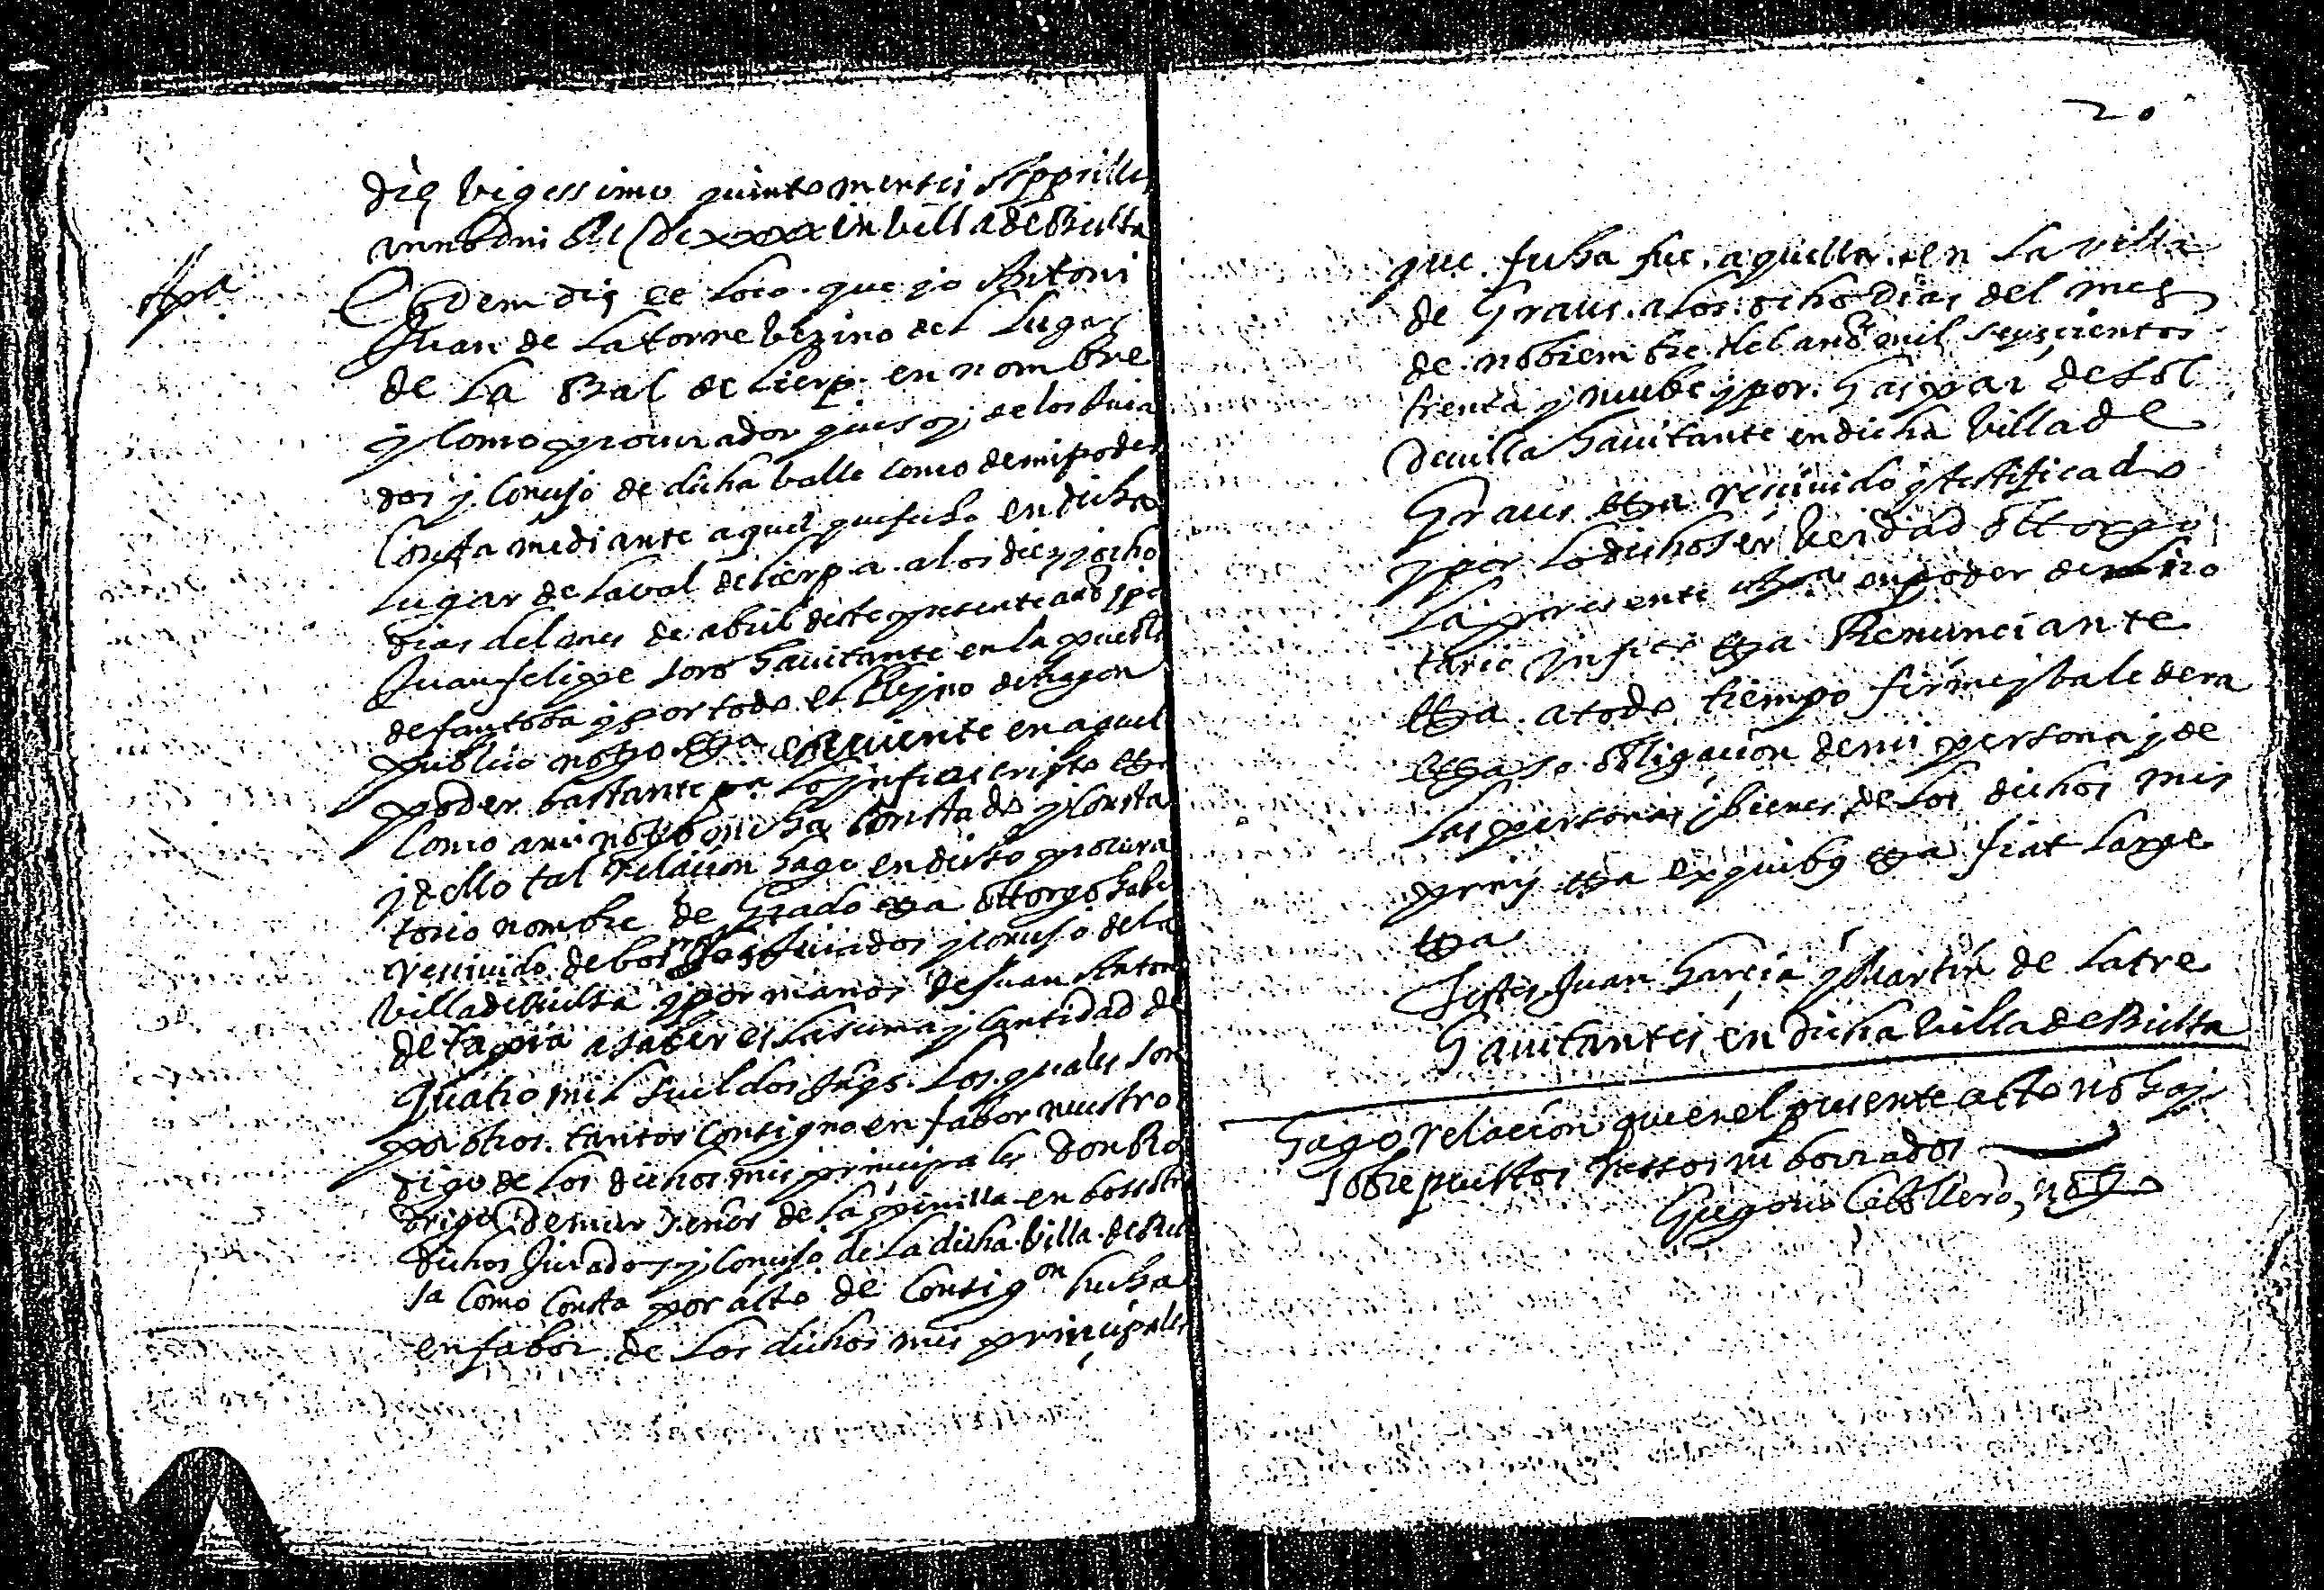 die vigessimo quinto mensis Apprilis
anno Dni MDCxxxx in villa de Bielsa
Apa
Eodem die et loco. que yo Antoni
Juan de Latorre vezino del Lugar
de La Bal de Lierp. en nombre
y como procurador que soy de los Jura
dos y Consejo de dicha valle como de mi poder
Consta mediante aquel que fecho en dicho
Lugar de Laval de lierp a. a los diez y ocho
dias del mes de abril deste presente año y por
Juan felipe Soro havitante en la puebla
de fantoba y por todo el Reyno de Aragon
publico noto. etta.
poder bastante pa. Lo infrascripto etta
Como a mi noto. me ha Constado y Consta
y dello tal relacion hago en dicho procura
torio nombre de Grado etta ottorgo haber
recivido de bos Jurados y Consejo de la
villa de Bielsa y por manos de Juan Anton
de Tapia a saber es La suma y Cantidad de
quatro mil sueldos Jaqs. Los quales son
por otros. tantos Consigno en fabor nuestro
digo de Los dichos mis principales Don Ro
drigo de mur señor de La pinilla en bosotros
dichos Jurados y Consejo de La dicha villa. de Biel
sa Como Consta por acto de Consigon. hecha
en fabor de Los dichos mis principales
20
que. fecha fue. aquella. en La villa
de Graus. a Los. ocho Dias del mes
de nobiembre. del año mil seyscientos
trenta y nuebe y por. Gaspar de Sol
devilla havitante en dicha villa de
Graus etta recivido y testificado
y por Lo dicho ser verdad ottorgo
La presente apa. en poder del no
tario infrto etta Renunciante
etta. a todo tiempo firme y baledera
etta so obligacion de mi persona y de
Las personas y bienes de Los dichos mis
prnes etta ex quibus etta fiat Large
etta
Testes Juan Garcia y Martin de Latre
havitantes en dicha villa de Bielsa
Hago relacion que en el presente acto no hay
sobrepuestos ni borrados
Gregorio Cebollero, noto